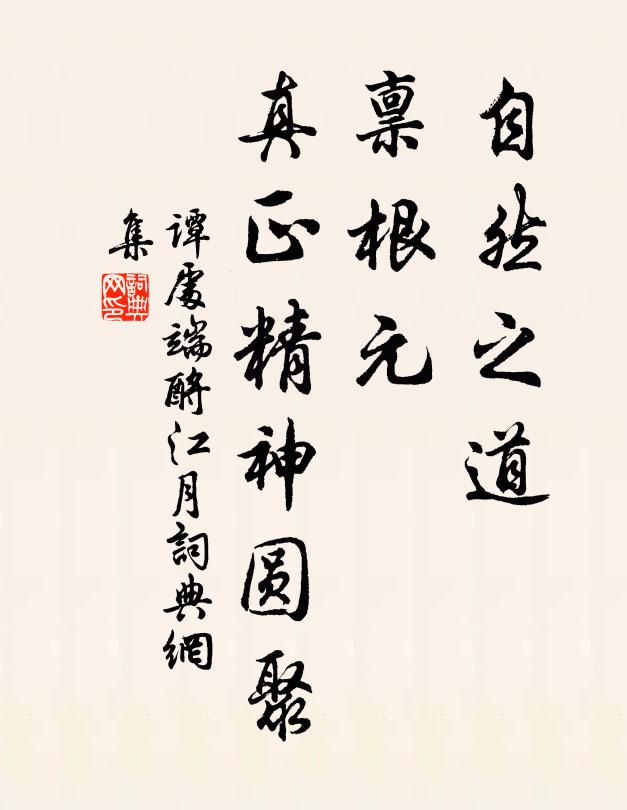 自然之道
禀根元
真正精神圆聚
谭處端酹江月詞典網
集
詞典网印